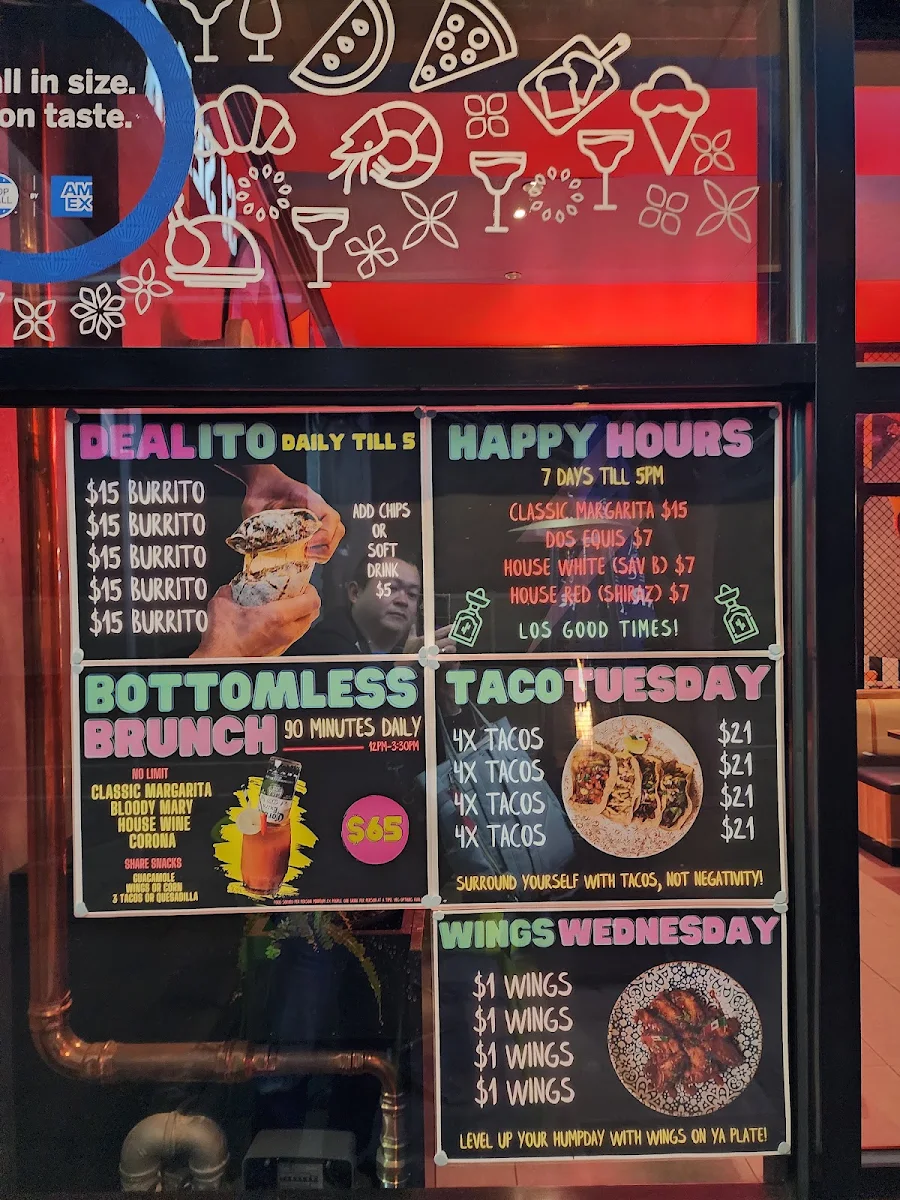 ll in size.
on taste.
BY
AM
EX
DEALITO DAILY TILL 5
$15 BURRITO
$15 BURRITO
$15 BURRITO
$15 BURRITO
$15 BURRITO
ADD CHIPS
OR
SOFT
DRINK
$5
HAPPY HOURS
7 DAYS TILL 5PM
CLASSIC MARGARITA $15
DOS EQUIS $7
HOUSE WHITE (SAV B) $7
HOUSE RED (SHIRAZ) $7
LOS GOOD TIMES!
BOTTOMLESS
BRUNCH 90 MINUTES DAILY
12PM-3:30PM
NO LIMIT
CLASSIC MARGARITA
BLOODY MARY
HOUSE WINE
CORONA
SHARE SNACKS
GUACAMOLE
WINGS OR CORN
3 TACOS OR QUESADILLA
$65
TACO TUESDAY
4X TACOS $21
4X TACOS $21
4X TACOS $21
4X TACOS $21
SURROUND YOURSELF WITH TACOS, NOT NEGATIVITY!
WINGS WEDNESDAY
$1 WINGS
$1 WINGS
$1 WINGS
$1 WINGS
LEVEL UP YOUR HUMPDAY WITH WINGS ON YA PLATE!